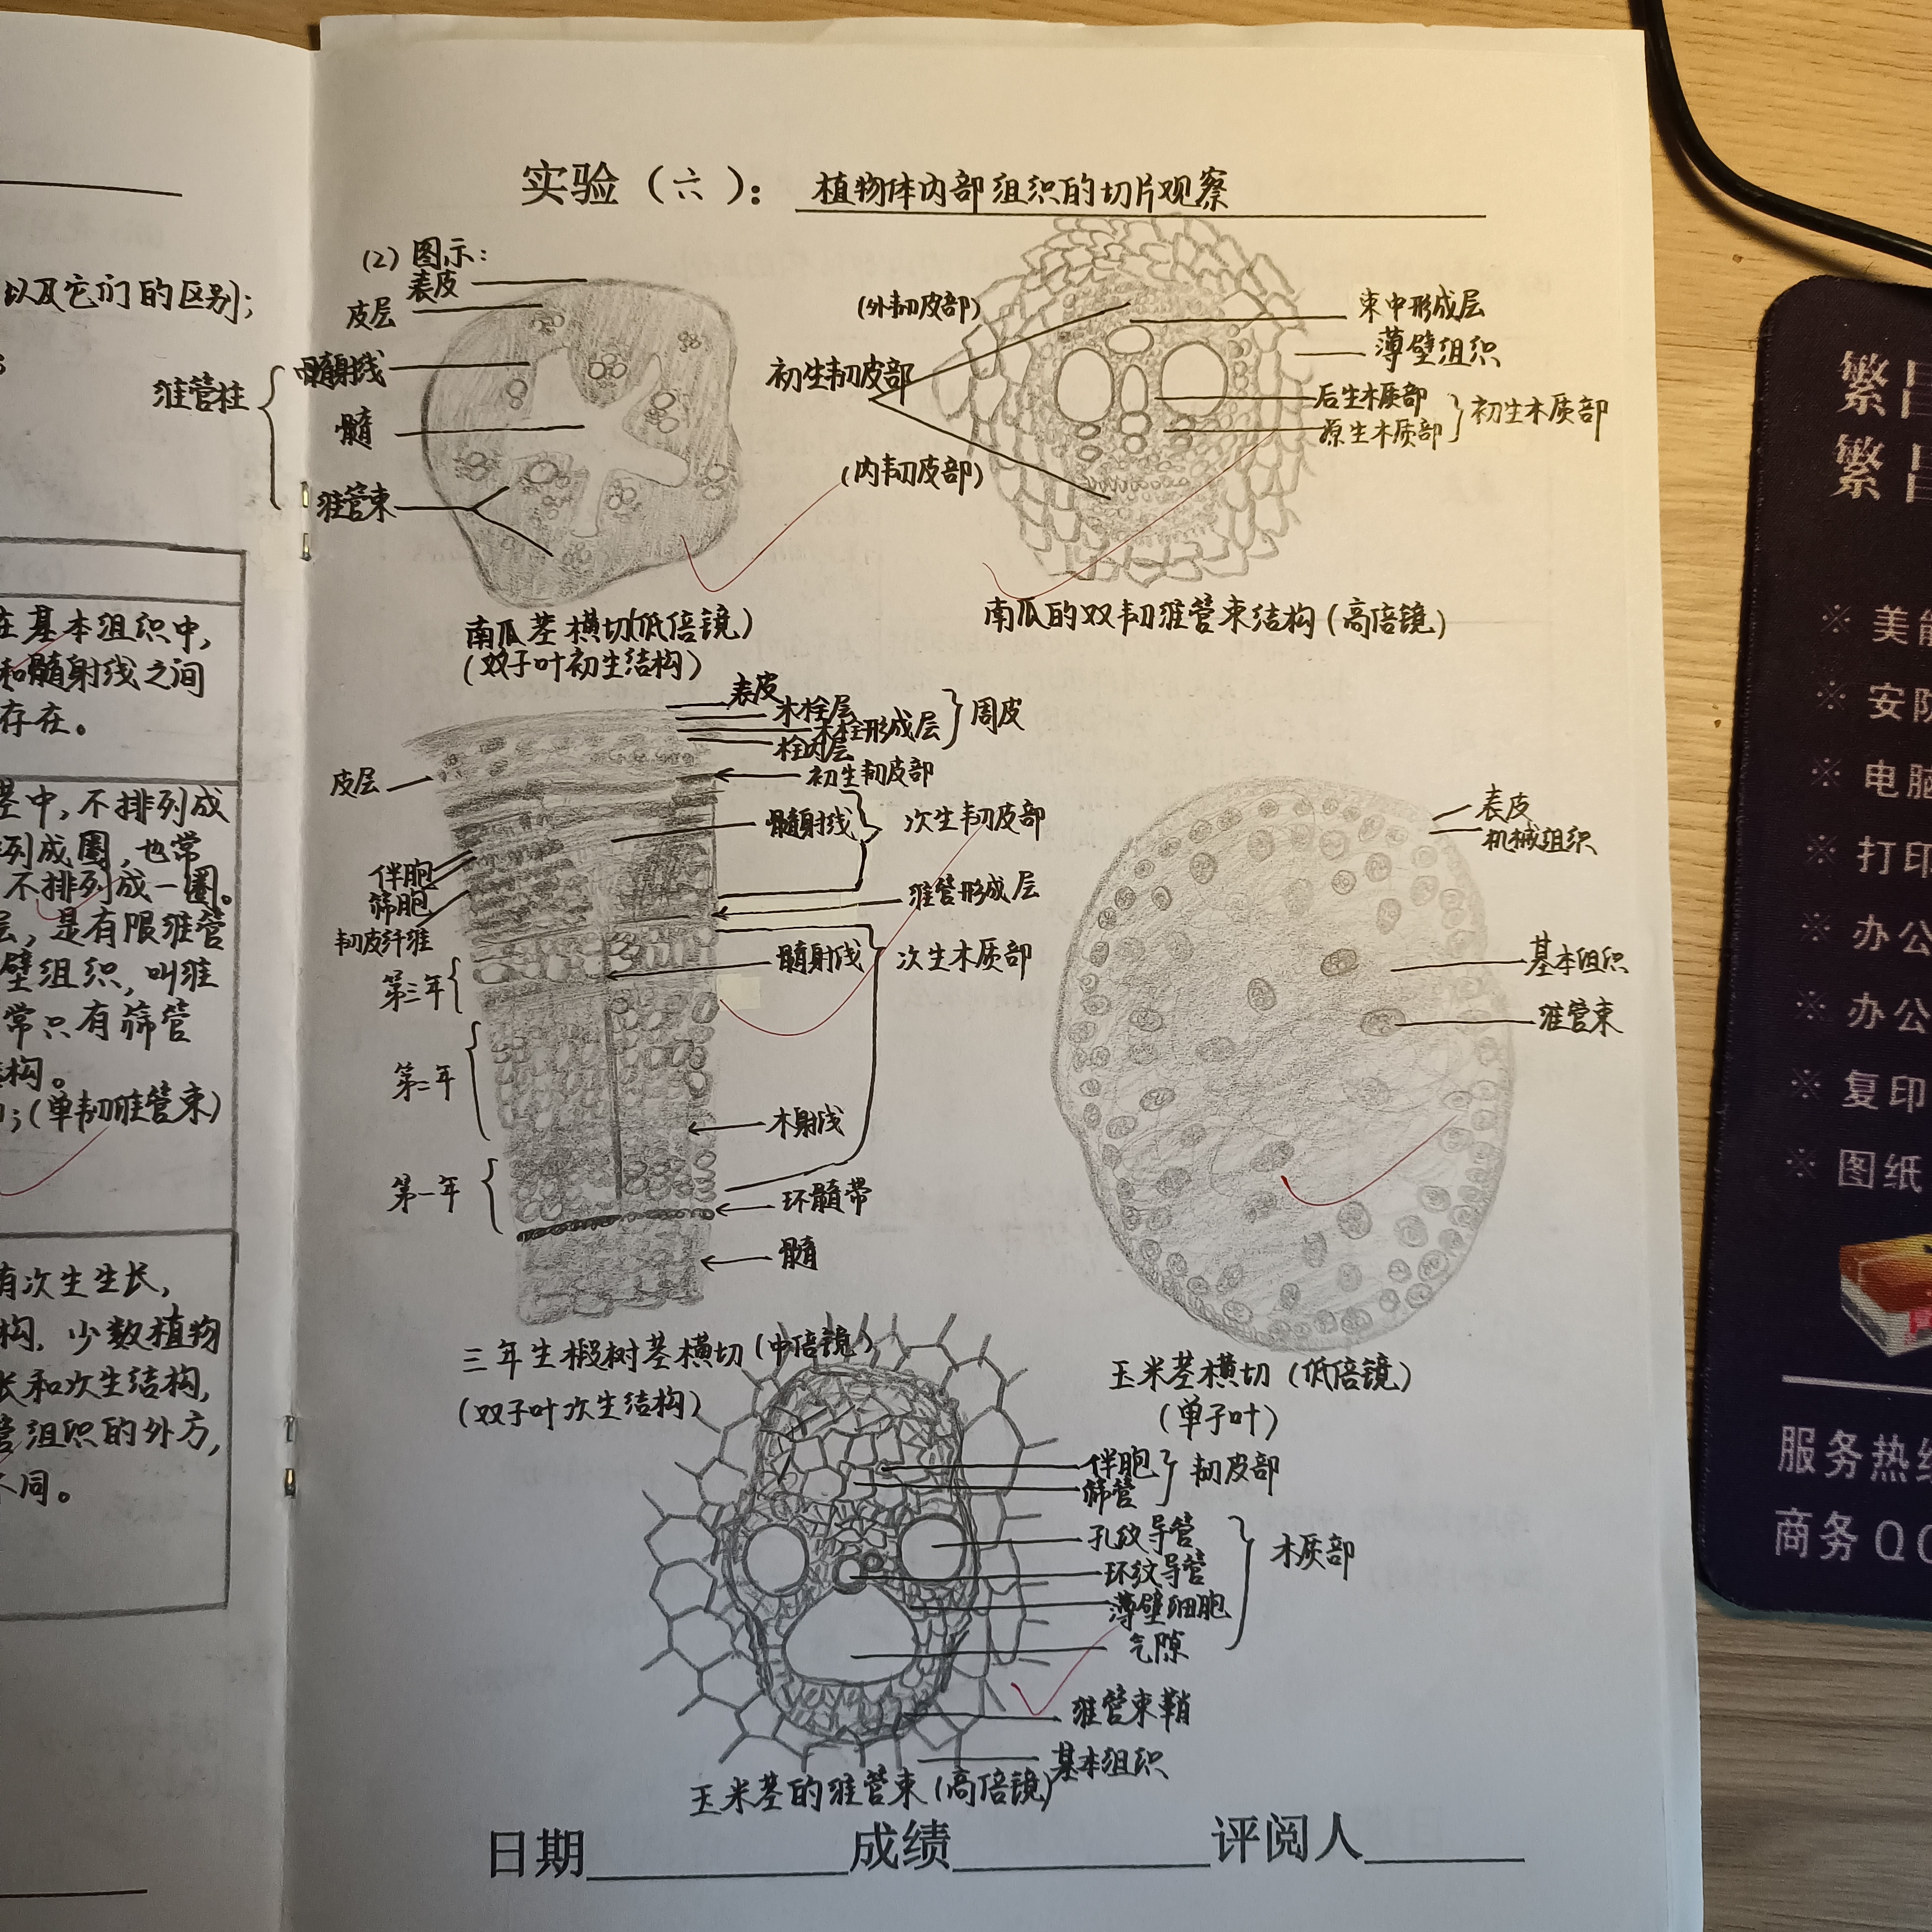 以及它们的区别;
在基本组织中,
和髓射线之间
存在。
茎中,不排列成
列成圈,也常
不排列成一圈。
层,是有限维管
壁组织,叫维
常只有筛管
结构。
(单韧维管束)
有次生生长,
构,少数植物
长和次生结构,
管组织的外方,
不同。
实验(六):植物体内部组织的切片观察
(2)图示:
表皮
皮层
髓射线
髓
维管束
维管柱
南瓜茎横切(低倍镜)
(双子叶初生结构)
(外韧皮部)
初生韧皮部
(内韧皮部)
束中形成层
薄壁组织
后生木质部
原生木质部
初生木质部
南瓜的双韧维管束结构(高倍镜)
表皮
木栓层
木栓形成层
栓内层
周皮
皮层
初生韧皮部
髓射线
次生韧皮部
伴胞
筛胞
韧皮纤维
维管形成层
髓射线
次生木质部
第三年
第二年
木射线
第一年
环髓带
髓
三年生椴树茎横切(中倍镜)
(双子叶次生结构)
表皮
机械组织
基本组织
维管束
玉米茎横切(低倍镜)
(单子叶)
伴胞
筛管
韧皮部
孔纹导管
环纹导管
薄壁细胞
气隙
木质部
维管束鞘
基本组织
玉米茎的维管束(高倍镜)
日期 成绩 评阅人
繁昌
繁昌
※ 美能
※ 安防
※ 电脑
※ 打印
※ 办公
※ 办公
※ 复印
※ 图纸
服务热线
商务QQ